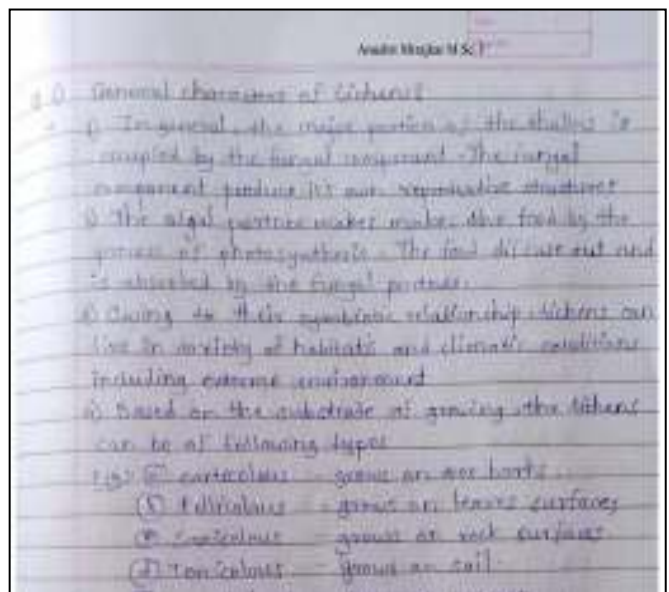 M.Sc I
General characters of Lichens
1) In general, the major portion of the thallus is
occupied by the fungal component. The fungal
component produce it's own reproductive structures
The algal partner makes makes the food by the
process of photosynthesis. The food diffuse out and
is absorbed by the fungal partner.
Owing to their symbiotic relationship lichens can
live in variety of habitats and climatic conditions
including extreme environment
Based on the substrate of growing, the lichens
can be of following types
corticolous - grows on tree barks
(b) - grows on leaves surfaces
- grows on rock surfaces
(d) - grows on soil.